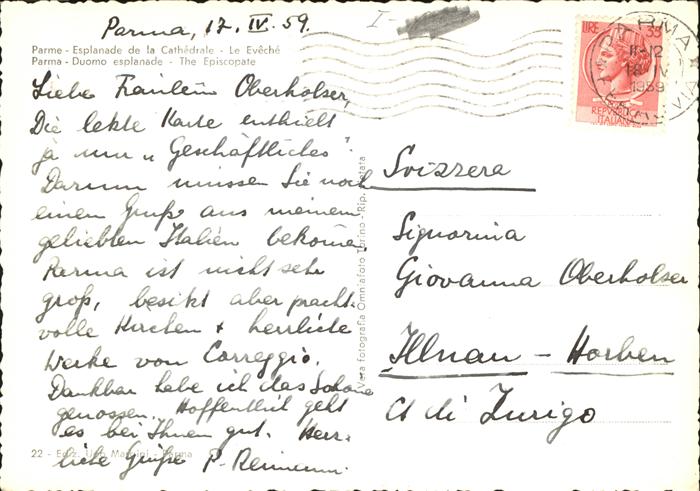 Parma, 17. IV. 59.
Parme - Esplanade de la Cathédrale - Le Evêché
Parma - Duomo esplanade - The Episcopate
Liebe Fräulein Oberholser,
Die letzte Karte enthielt
ja nur „Geschäftliches".
Darum müssen Sie noch
einen Gruß aus meinem
geliebten Italien bekomme.
Parma ist nicht sehr
groß, besitzt aber pracht-
volle Kirchen + herrliche
Werke von Correggio.
Dankbar habe ich das Schöne
genossen. Hoffentlich geht
es bei Ihnen gut. Herz-
liche Grüße P.
22 - Ediz. Ugo - Parma
Vera fotografia Omniafoto Torino - Rip. Vietata
LIRE 35
REPUBBLICA
ITALIANA
PARMA
11-12
18 IV
1959
Svizzera
Signorina
Giovanna Oberholser
Illnau - Horben
Ct di Zurigo